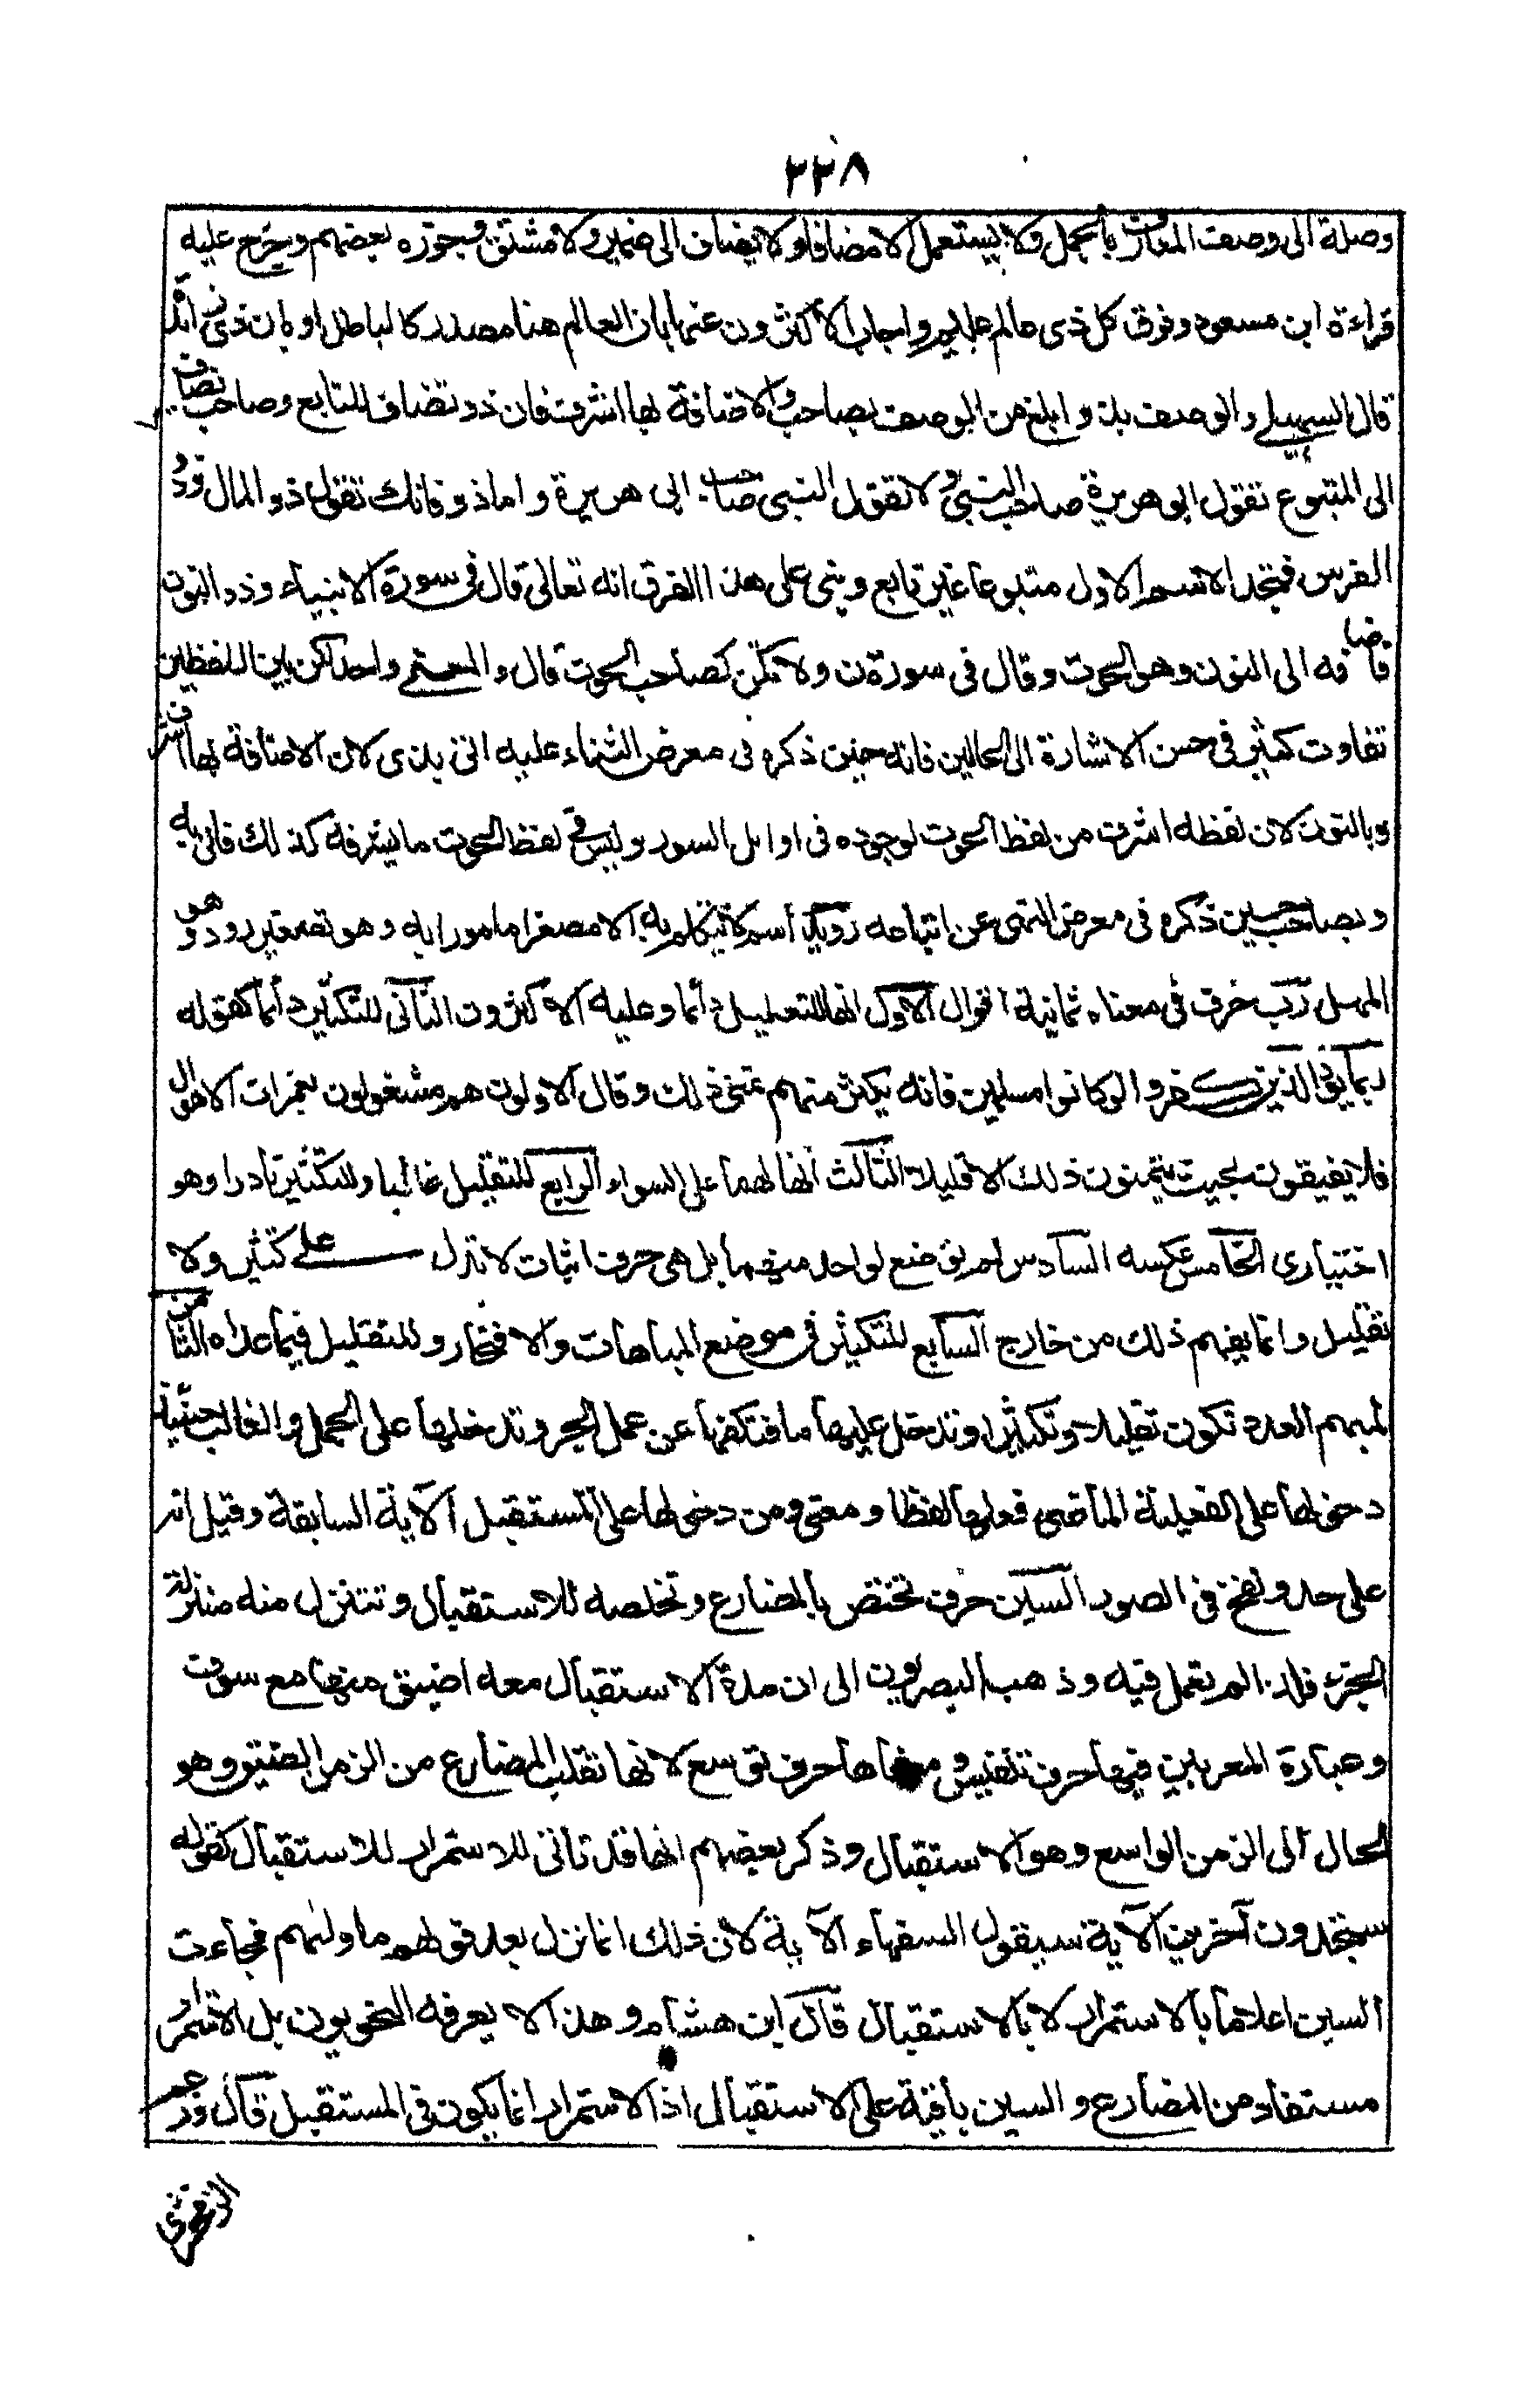 ٢٣٨
وصلة الى وصف المعارف بالجمل ولا يستعمل الا مضافا ولا يضاف الى ضمير ولا مشتق وجوزه بعضهم وخرج عليه
قراءة ابن مسعود وفوق كل ذى عالم عليم واجاب الأكثرون عنها بان العالم هنا مصدر كالباطل او بان ذى زائدة
قال السهيلى والوصف بذو ابلغ من الوصف بصاحب والاضافة بها اشرف فان ذو تضاف للتابع وصاحب تضاف
الى المتبوع تقول ابو هريرة صاحب النبى ولا تقول النبى صاحب ابى هريرة واما ذو فانك تقول ذو المال وذو
الفرس فتجد الاسم الاول متبوعا غير تابع وبنى على هذا الفرق انه تعالى قال فى سورة الانبياء وذو النون
فاضافه الى النون وهو الحوت وقال فى سورة ن ولا تكن كصاحب الحوت قال والمعنى واحد لكن بين اللفظين
تفاوت كثير فى حسن الاشارة الى الحالين فانه حين ذكره فى معرض الثناء عليه اتى بذى لان الاضافة بها اشرف
وبالنون لان لفظه اشرف من لفظ الحوت لوجوده فى اوايل السور وليس فى لفظ الحوت ما يشرفه كذلك فاتى به
وبصاحب حين ذكره فى معرض النهى عن اتباعه رويد اسم لا يتكلم به الا مصغرا مامورا به وهو تصغير رود وهو
المهل رب حرف فى معناه ثمانية اقوال الاول انها للتقليل دائما وعليه الاكثرون الثانى للتكثير دائما كقوله
ربما يود الذين كفروا لو كانوا مسلمين فانه يكثر منهم تمنى ذلك وقال الاولون هم مشغولون بغمرات الاهوال
فلا يفيقون بحيث يتمنون ذلك الا قليلا الثالث انها لهما على السواء الرابع للتقليل غالبا وللتكثير نادرا وهو
اختيارى الخامس عكسه السادس لم توضع لواحد منهما بل هى حرف اثبات لا تدل على تكثير ولا
تقليل وانما يفهم ذلك من خارج السابع للتكثير فى موضع المباهات والافتخار وللتقليل فيما عداه الثامن
لمبهم العدد تكون تقليلا وتكثيرا وتدخل عليها ما فتكفها عن عمل الجر وتدخلها على الجمل والغالب حينئذ
دخولها على الفعلية الماضى فعلها لفظا ومعنى ومن دخولها على المستقبل الآية السابقة وقيل انه
على حد ونفخ فى الصور السين حرف تختص بالمضارع وتخلصه للاستقبال وتتنزل منه منزلة
الجزء فلذا لم تعمل فيه وذهب البصريون الى ان مدة الاستقبال معه اضيق منها مع سوف
وعبارة المعربين فيها حرف تنفيس ومعناها حرف توسع لانها تقلب المضارع من الزمن الضيق وهو
الحال الى الزمن الواسع وهو الاستقبال وذكر بعضهم انها قد تاتى للاستمرار للاستقبال كقوله
ستجدون آخرين الآية سيقول السفهاء الآية لان ذلك انما نزل بعد قولهم ما ولٰهم فجاءت
السين اعلاما بالاستمرار لا بالاستقبال قال ابن هشام وهذا لا يعرفه النحويون بل الاستمرار
مستفاد من المضارع والسين باقية على الاستقبال اذ الاستمرار انما يكون فى المستقبل قال وزعم
الزمخشرى